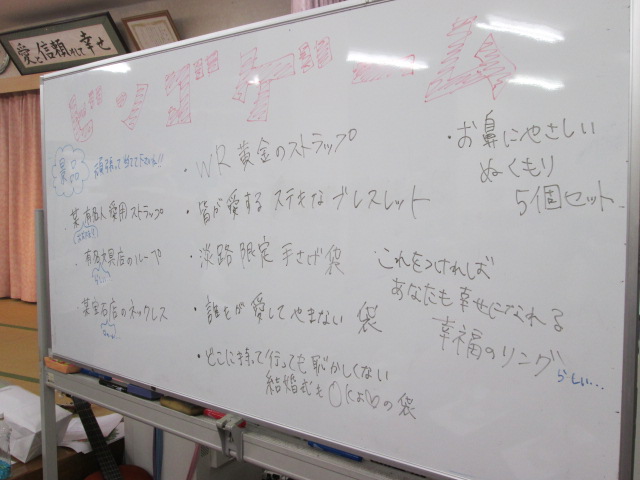 愛と信頼そして幸せ
ビンゴゲーム
景品
頑張って当てて下さい!!
・某有名人愛用ストラップ
・有名文具店のルーペ
・某宝石店のネックレス
・WR黄金のストラップ
・皆が愛するステキなブレスレット
・淡路限定手さげ袋
・誰もが愛してやまない袋
・どこに持って行っても恥かしくない
結婚式もOKよの袋
・お鼻にやさしい
ぬくもり
5個セット
・これをつければ
あなたも幸せになれる
幸福のリング
らしい…